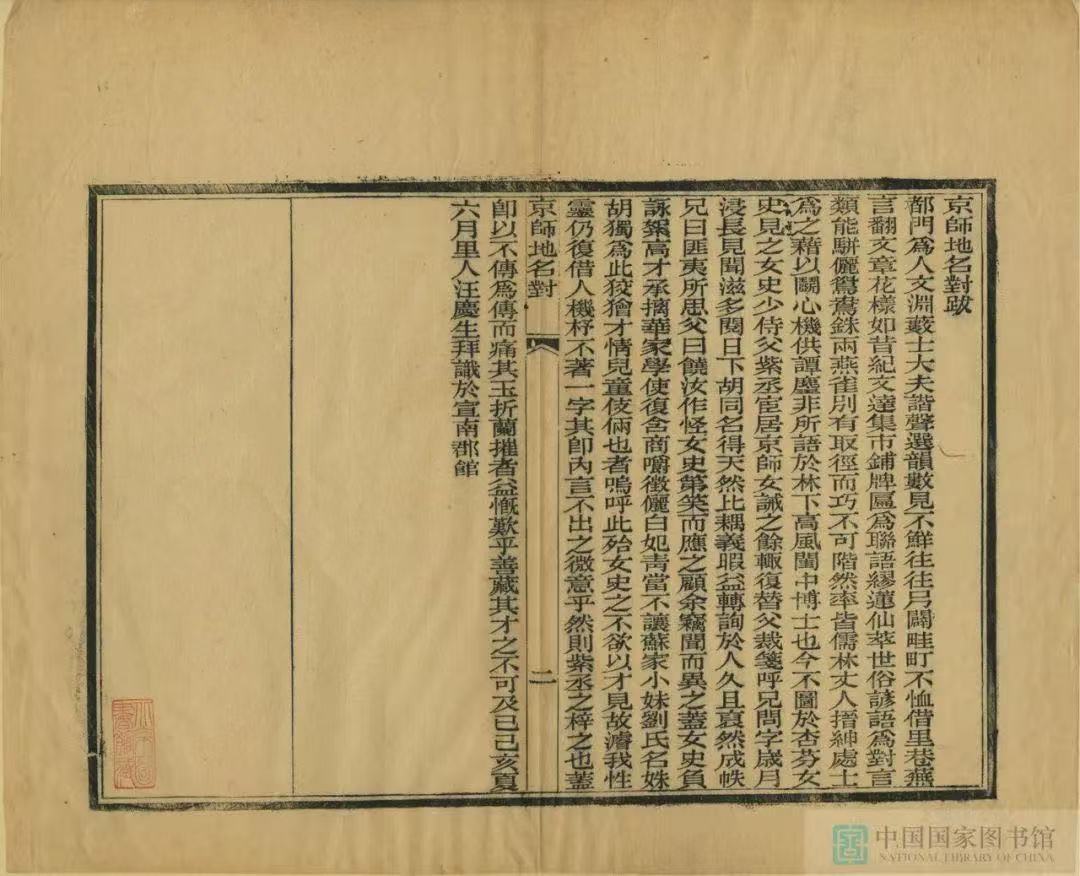 京師地名對跋
都門爲人文淵藪士大夫諧聲選韻數見不鮮往往另闢畦町不恤借里巷蕪
言翻文章花樣如昔紀文達集市鋪牌匾爲聯語繆蓮仙萃世俗諺語爲對言
類能駢儷鴛鴦銖兩燕雀別有取徑而巧不可階然率皆儒林丈人搢紳處士
爲之藉以鬭心機供譚麈非所語於林下高風閨中博士也今不圖於杏芬女
史見之女史少侍父紫丞宦居京師女誡之餘輒復替父裁箋呼兄問字歲月
浸長見聞滋多閱日下胡同名得天然比耦義暇益轉詢於人久且裒然成帙
兄曰匪夷所思父曰饒汝作怪女史第笑而應之顧余竊聞而異之蓋女史負
詠絮高才承摛華家學使復含商嚼徵儷白妃靑當不讓蘇家小妹劉氏名姝
胡獨爲此狡獪才情兒童伎倆也者嗚呼此殆女史之不欲以才見故濬我性
靈仍復借人機杼不著一字其卽內言不出之微意乎然則紫丞之梓之也蓋
京師地名對
二
卽以不傳爲傳而痛其玉折蘭摧者益慨歎乎善藏其才之不可及已己亥夏
六月里人汪慶生拜識於宣南郡館
中国国家图书馆
NATIONAL LIBRARY OF CHINA